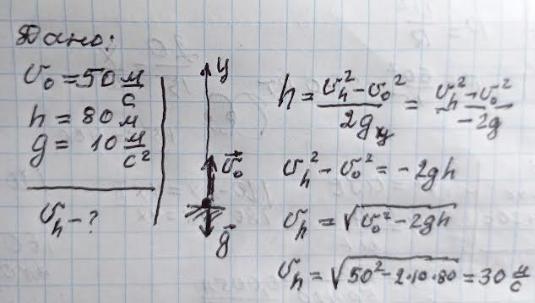 Дано:
υ₀ = 50 м/с
h = 80 м
g = 10 м/с²
υₕ - ?
y
υ⃗₀
g⃗
h = (υₕ² - υ₀²)/(2g_y) = (υₕ² - υ₀²)/(-2g)
υₕ² - υ₀² = -2gh
υₕ = √(υ₀² - 2gh)
υₕ = √(50² - 2·10·80) = 30 м/с